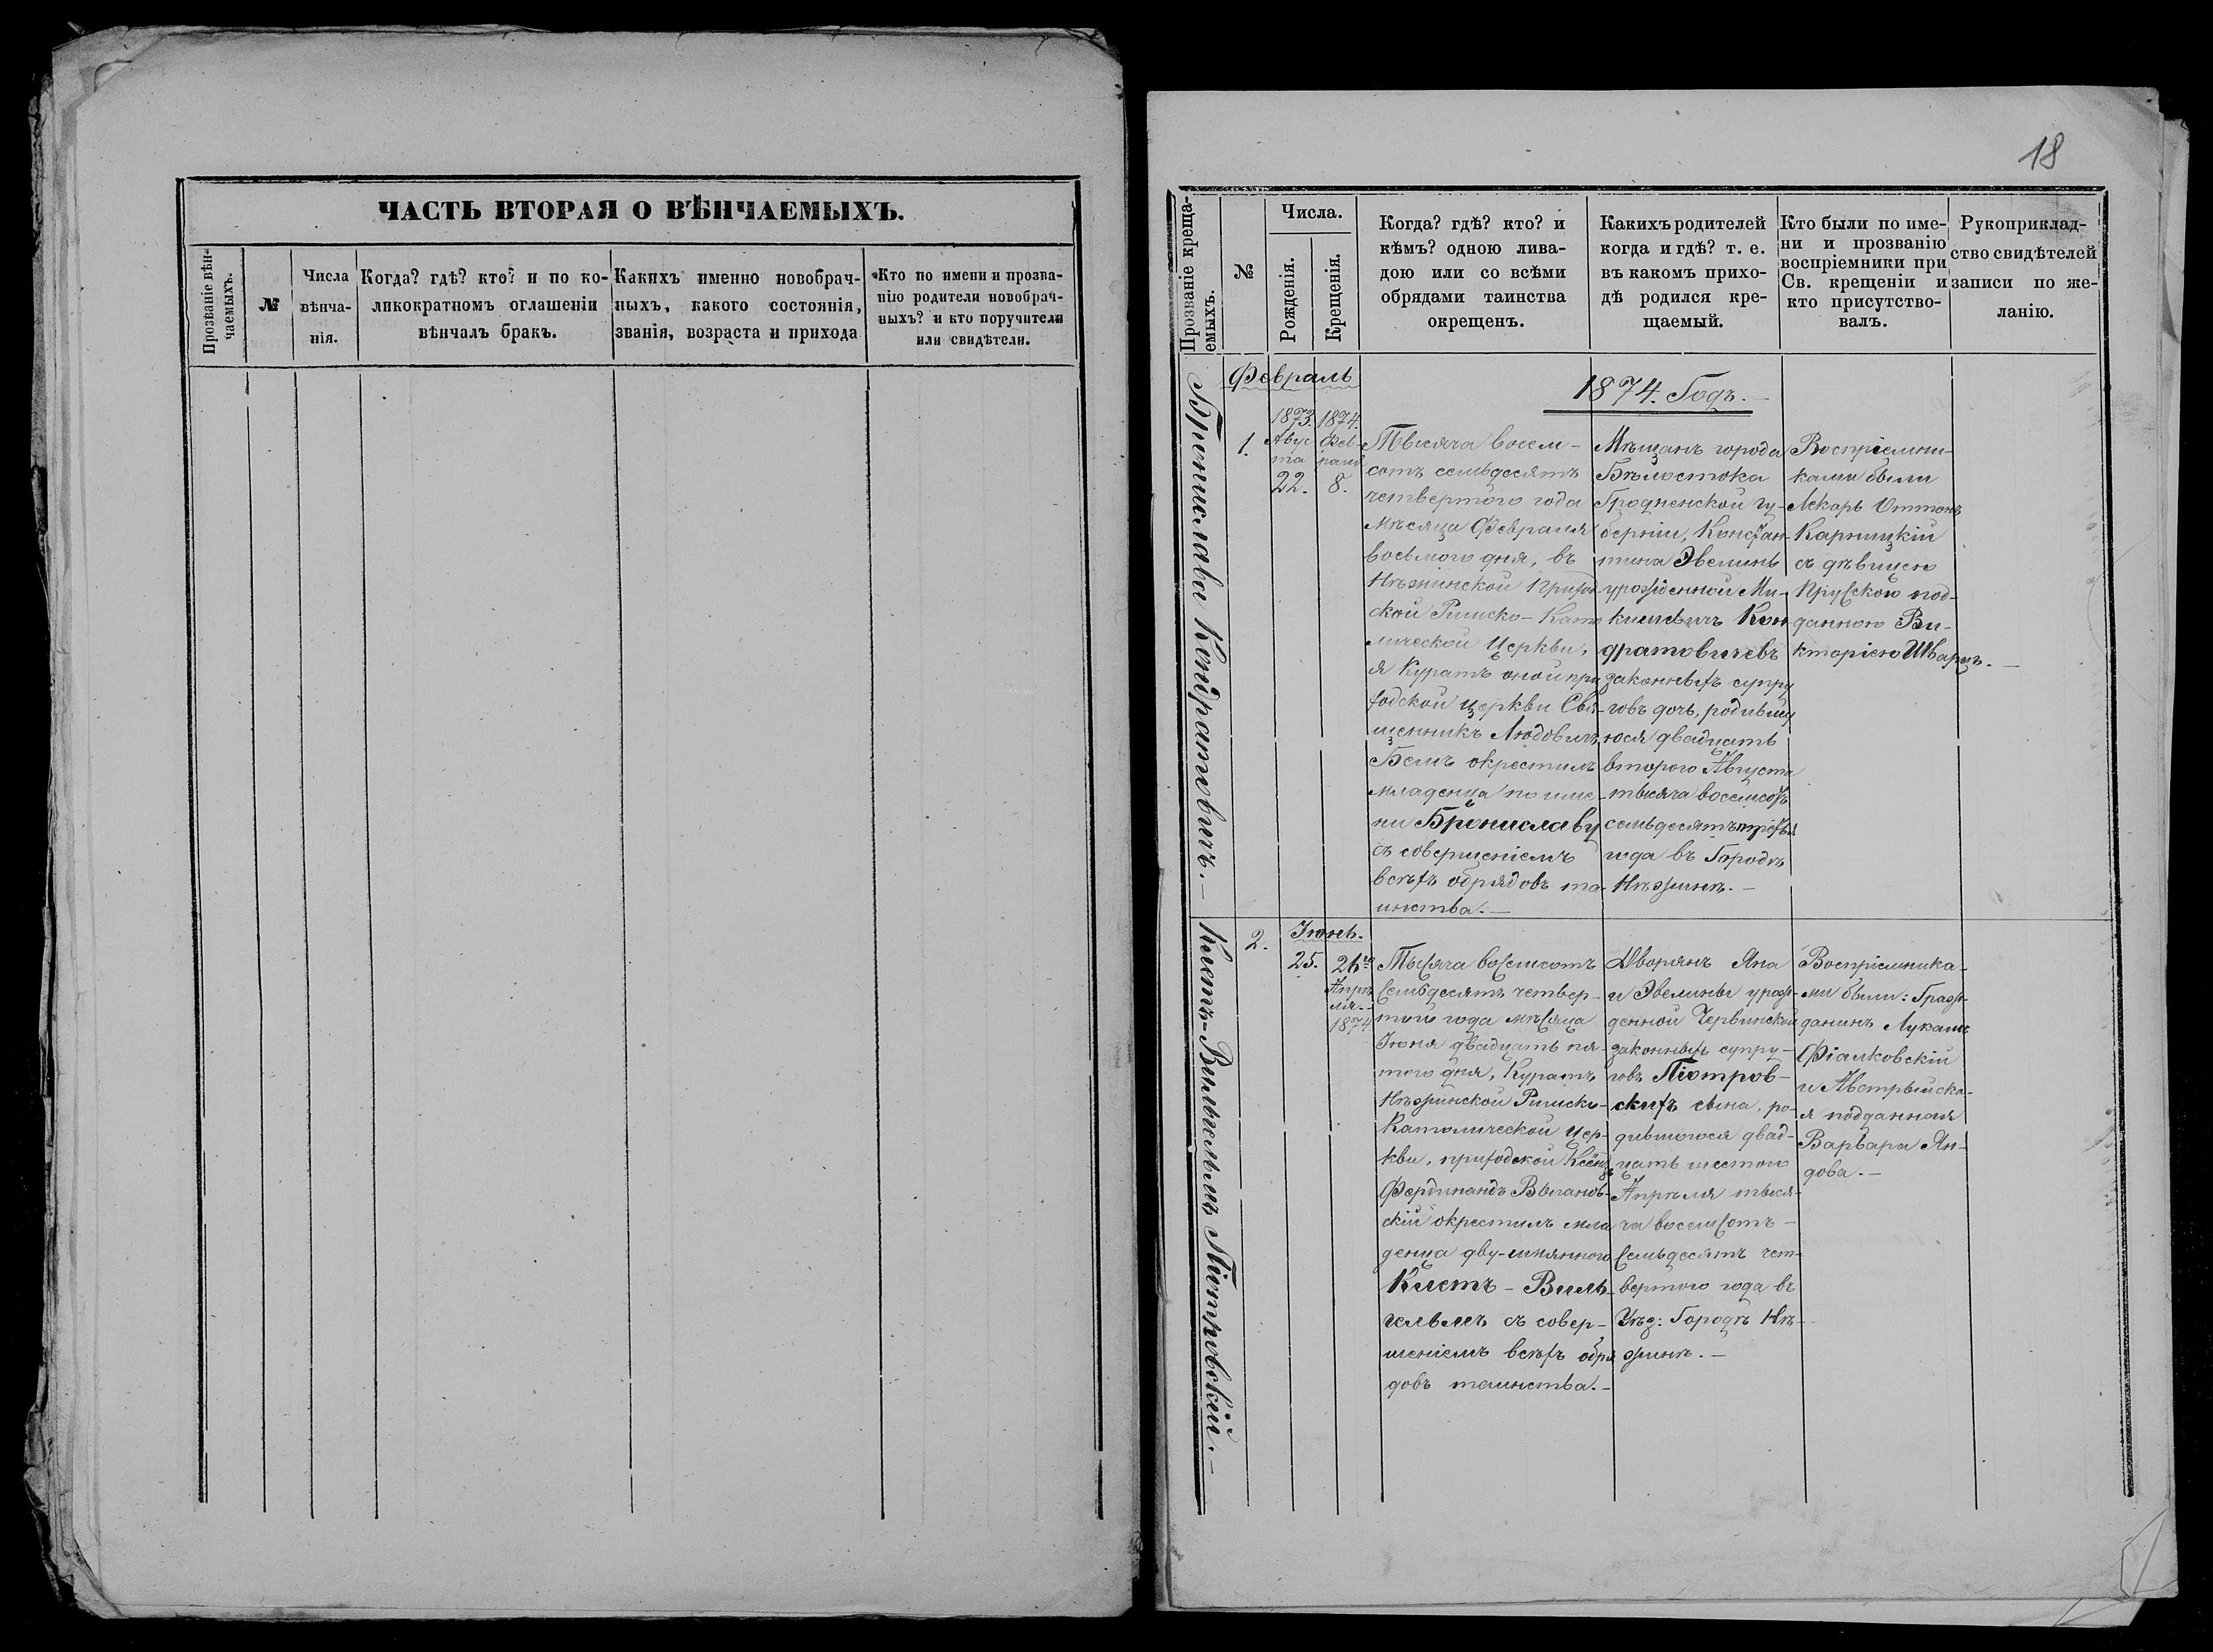 ЧАСТЬ ВТОРАЯ О ВѢНЧАЕМЫХЪ.
Прозваніе вѣн-
чаемыхъ.
№
Числа
вѣнча-
нія.
Когда? гдѣ? кто? и по ко-
ликократномъ оглашеніи
вѣнчалъ бракъ.
Какихъ именно новобрач-
ныхъ, какого состоянія,
званія, возраста и прихода
Кто по имени и прозва-
нію родители новобрач-
ныхъ? и кто поручители
или свидѣтели.
18
Прозваніе креща-
емыхъ.
№
Числа.
Рожденія.
Крещенія.
Когда? гдѣ? кто? и
кѣмъ? одною лива-
дою или со всѣми
обрядами таинства
окрещенъ.
Какихъ родителей
когда и гдѣ? т. е.
въ какомъ прихо-
дѣ родился кре-
щаемый.
Кто были по име-
ни и прозванію
воспріемники при
Св. крещеніи и
кто присутство-
валъ.
Рукоприклад-
ство свидѣтелей
записи по же-
ланію.
Февраль
1874. Годъ.
Бронислава Кондратовичъ.
1.
1873.
Авгус
та
22.
1874.
Фев-
раля
8.
Тысяча восем-
сотъ семьдесятъ
четвертого года
мѣсяца Февраля
восьмого дня, въ
Нѣжинской Приход
ской Римско-Като
лической Церкви,
я Куратъ оной при
ходской церкви Свя-
щенникъ Людовигъ
Бемъ окрестилъ
младенца по име-
ни Брониславу
съ совершеніемъ
всѣхъ обрядовъ та-
инства.
Мѣщанъ города
Бѣлостока
Гродненской гу-
берніи, Констан-
тина Эвелины
урожденной Ми-
кишевичъ Кон
дратовичевъ
законныхъ супру
говъ дочь, родившу
юся двадцать
второго Августа
тысяча восемсотъ
семьдесятътретья
года въ Городѣ
Нѣжинѣ.
Воспріемни-
ками были
Лекарь Оттонъ
Карницкій
съ дѣвицею
Прусскою под-
данною Ви-
кторіею Шварцъ.
Клетъ-Вильгельмъ Піотровскій.
2.
Іюнь.
25.
26го
Апрѣ
ля.
1874
Тысяча восемсотъ
семьдесятъ четвер-
того года мѣсяца
Іюня двадцать пя-
того дня, Куратъ
Нѣжинской Римско-
Католической Цер-
кви, приходской Ксёндзъ
Фердинандъ
скій окрестилъ мла
денца дву-имянного
Клетъ - Виль-
гельмъ съ совер-
шеніемъ всѣхъ обря
довъ таинства.
Дворянъ Яна
и Эвелины урож-
денной Червинской
законныхъ супру-
говъ Піотров-
скихъ сына, ро-
дившогося двад-
цать шестого
Апрѣля тыся-
ча восемсотъ
семьдесятъ чет-
вертого года въ
Уѣз: Городѣ Нѣ-
жинѣ.
Воспріемника-
ми были: Граж-
данинъ Лукашъ
Фіалковскій
и Австрыйска-
я подданная
Варвара Ян-
дова.